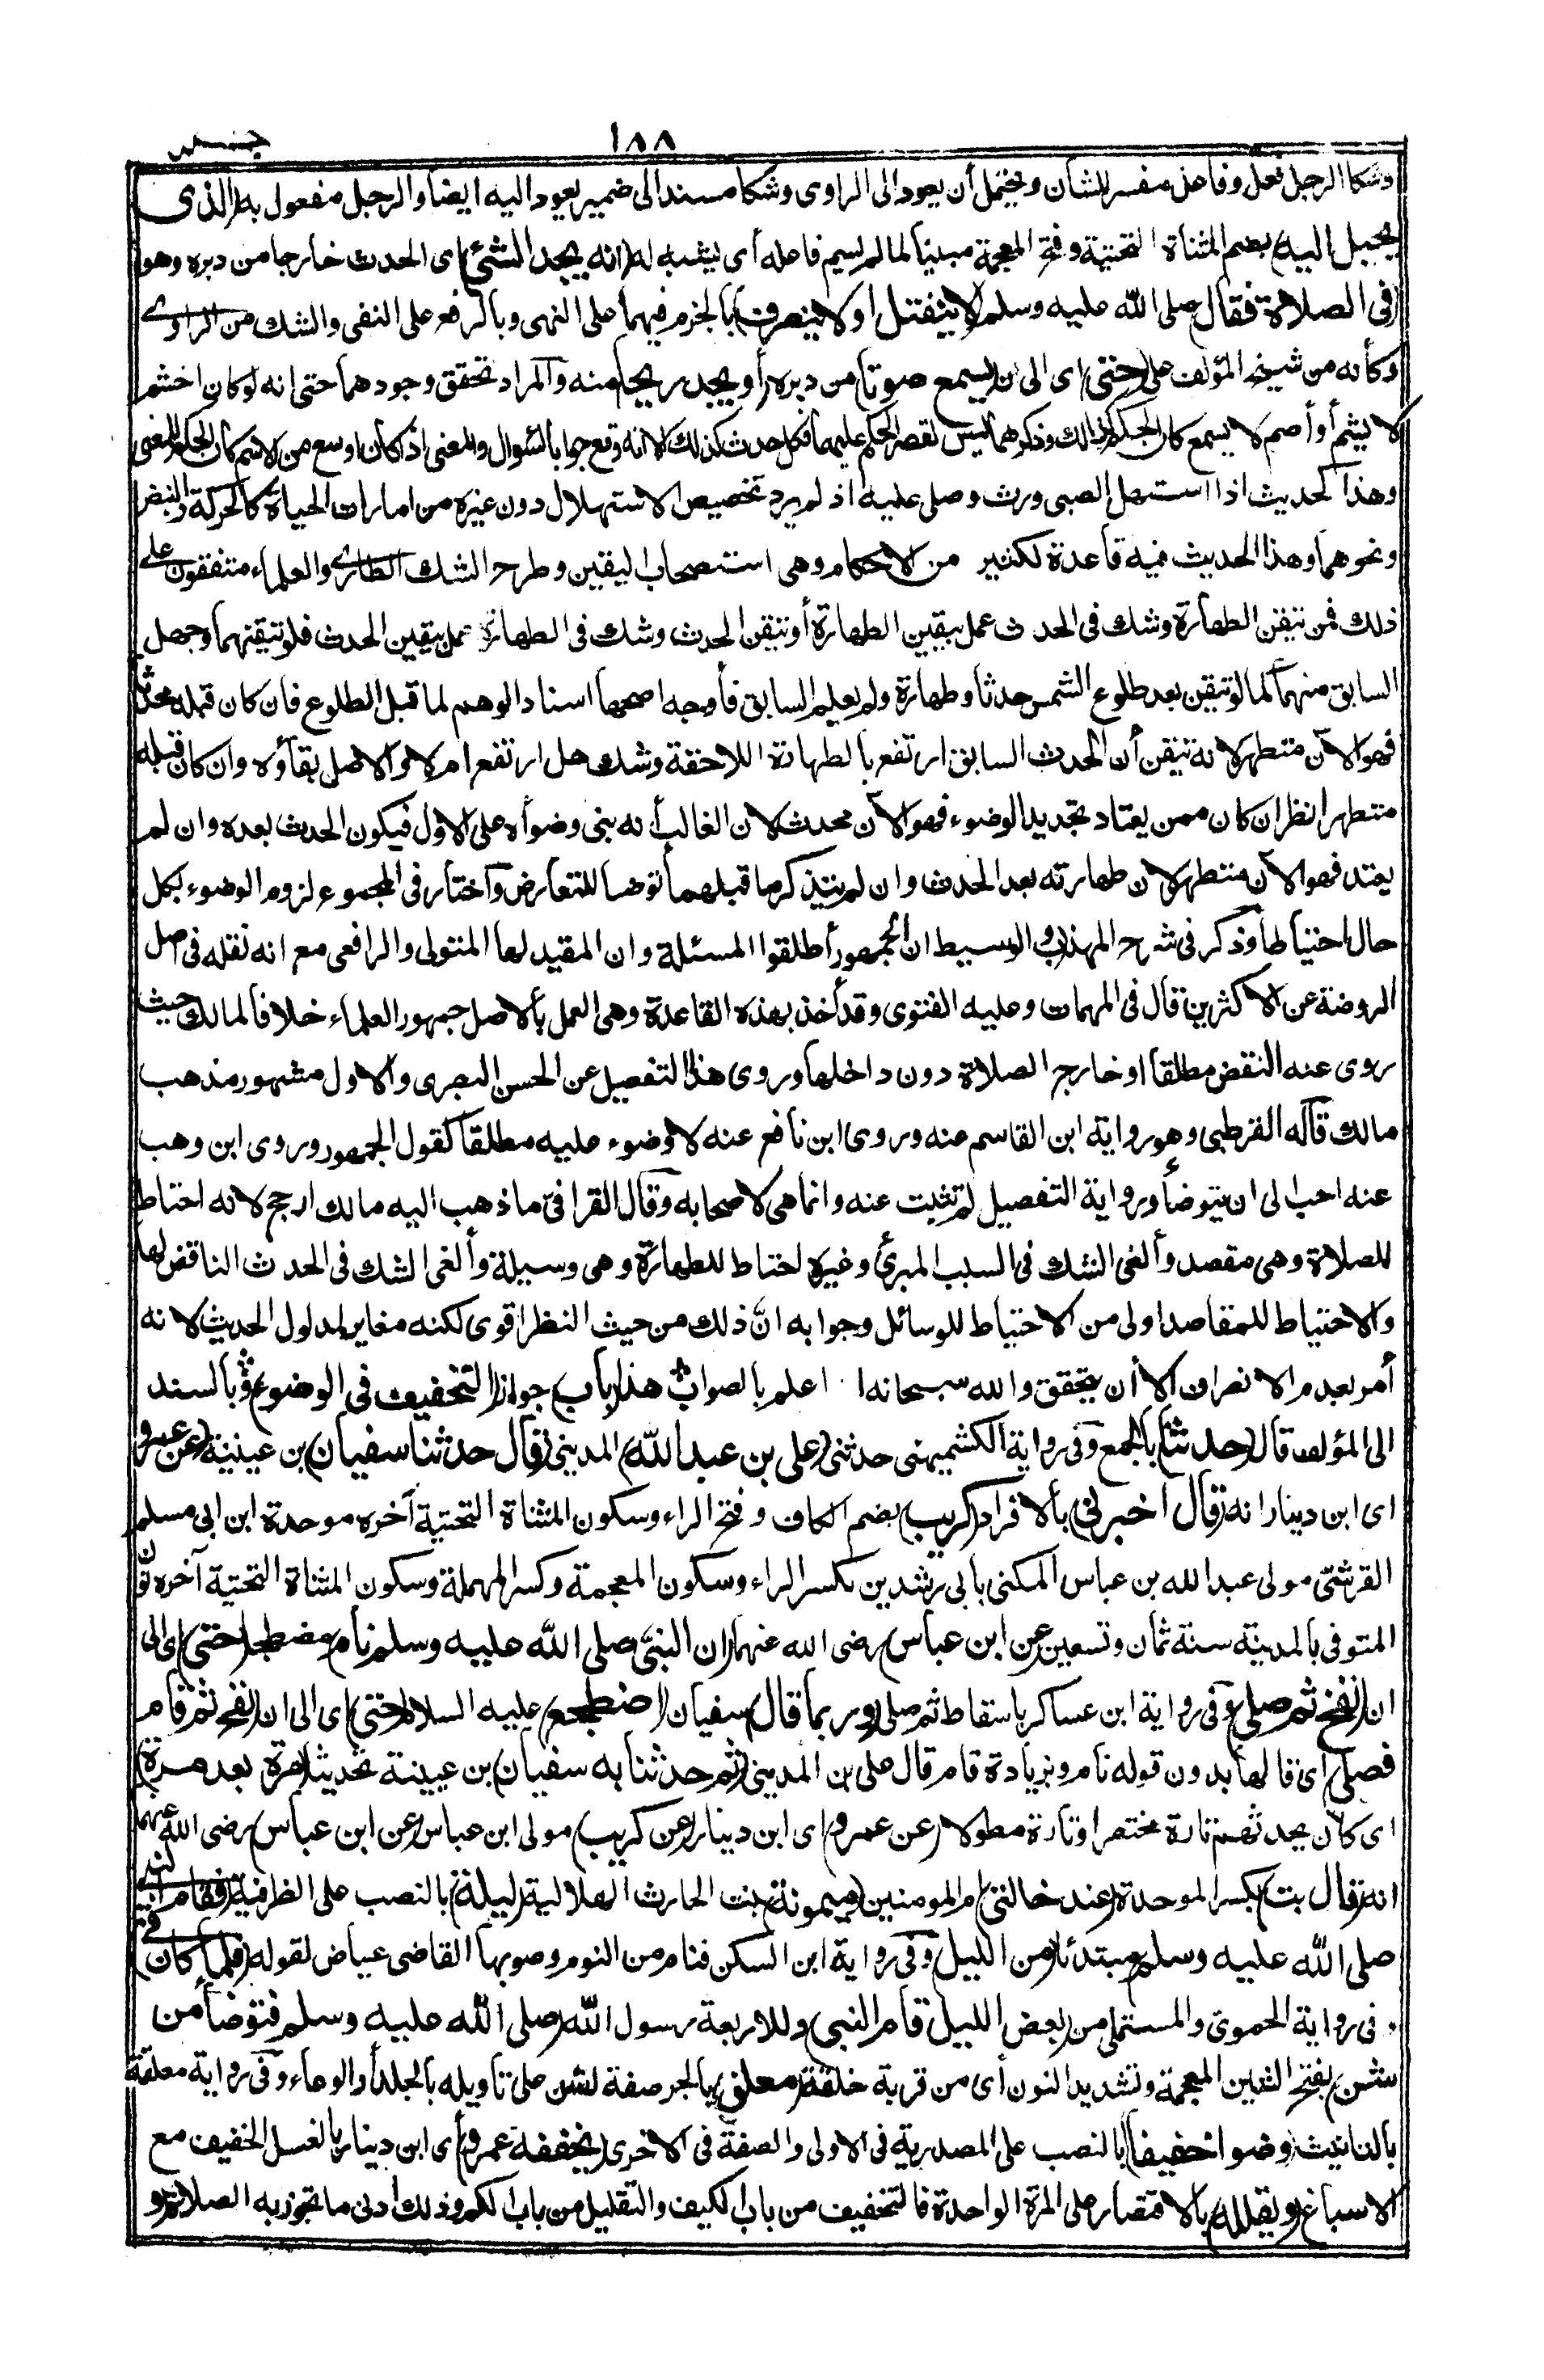 ١٨٨
وشكا الرجل فعل وفاعل مفسر للشأن ويحتمل أن يعود الى الراوى وشكا مسندا الى ضمير يعود اليه ايضا والرجل مفعول به (الذى
يخيل اليه) بضم المثناة التحتية وفتح المعجمة مبنيا لما لم يسم فاعله أى يشبه له (انه يجد الشئ) اى الحدث خارجا من دبره وهو
(فى الصلاة فقال) صلى الله عليه وسلم (لا ينفتل او لا ينصرف) بالجزم فيهما على النهى وبالرفع على النفى والشك من الراوى
وكأنه من شيخ المؤلف على (حتى) اى الى ان (يسمع صوتا) من دبره (أو يجد ريحا) منه والمراد تحقق وجودهما حتى انه لو كان اخشم
لا يشم أو أصم لا يسمع كان الحكم كذلك وذكرهما ليس لقصر الحكم عليهما فكل حدث كذلك لانه وقع جوابا لسؤال والمعنى اذا كان اوسع من الاسم كان الحكم للمعنى
وهذا كحديث اذا استهل الصبى ورث وصلى عليه اذ لم يرد تخصيص الاستهلال دون غيره من امارات الحياة كالحركة والنبض
ونحوهما وهذا الحديث فيه قاعدة لكثير من الاحكام وهى استصحاب اليقين وطرح الشك الطارى والعلماء متفقون على
ذلك فمن تيقن الطهارة وشك فى الحدث عمل بيقين الطهارة أو تيقن الحدث وشك فى الطهارة عمل بيقين الحدث فلو تيقنهما وجهل
السابق منهما كما لو تيقن بعد طلوع الشمس حدثا وطهارة ولم يعلم السابق فأوجه اصحها اسناد الوهم لما قبل الطلوع فان كان قبله محدثا
فهو الآن متطهر لانه تيقن أن الحدث السابق ارتفع بالطهارة اللاحقة وشك هل ارتفع ام لا والاصل بقاؤه وان كان قبله
متطهرا نظر ان كان ممن يعتاد تجديد الوضوء فهو الآن محدث لان الغالب أنه بنى وضوأه على الاول فيكون الحدث بعده وان لم
يعتد فهو الآن متطهر لان طهارته بعد الحدث وان لم يتذكر ما قبلهما توضأ للتعارض واختار فى المجموع لزوم الوضوء بكل
حال احتياطا وذكر فى شرح المهذب والوسيط ان الجمهور أطلقوا المسئلة وان المقيد لها المتولى والرافعى مع انه نقله فى اصل
الروضة عن الاكثرين قال فى المهمات وعليه الفتوى وقد أخذ بهذه القاعدة وهى العمل بالاصل جمهور العلماء خلافا لمالك حيث
روى عنه النقض مطلقا او خارج الصلاة دون داخلها وروى هذا التفصيل عن الحسن البصرى والاول مشهور مذهب
مالك قاله القرطبى وهو رواية ابن القاسم عنه وروى ابن نافع عنه لا وضوء عليه مطلقا كقول الجمهور وروى ابن وهب
عنه احب الى ان يتوضأ ورواية التفصيل لم تثبت عنه وانما هى لاصحابه وقال القرافى ما ذهب اليه مالك ارجح لانه احتاط
للصلاة وهى مقصد وألغى الشك فى السبب المبرئ وغيره احتاط للطهارة وهى وسيلة وألغى الشك فى الحدث الناقض لها
والاحتياط للمقاصد اولى من الاحتياط للوسائل وجوابه انّ ذلك من حيث النظر اقوى لكنه مغاير لمدلول الحديث لانه
أمر بعدم الانصراف الا أن يتحقق والله سبحانه ا اعلم بالصواب هذا (باب) جواز (التخفيف فى الوضوء) وبالسند
الى المؤلف قال (حدثنا) بالجمع وفى رواية الكشميهنى حدثنى (على بن عبد الله) المدينى (قال حدثنا سفيان) بن عيينة (عن عمرو)
اى ابن دينار انه (قال اخبرنى) بالافراد (كريب) بضم الكاف وفتح الراء وسكون المثناة التحتية آخره موحدة ابن ابى مسلم
القرشىّ مولى عبد الله بن عباس المكنى بابى رشدين بكسر الراء وسكون المعجمة وكسر المهملة وسكون المثناة التحتية آخره نون
المتوفى بالمدينة سنة ثمان وتسعين (عن ابن عباس) رضى الله عنهما (ان النبى صلى الله عليه وسلم نام) مضطجعا (حتى) اى الى
ان (نفخ ثم صلى) وفى رواية ابن عساكر باسقاط ثم صلى (وربما قال) سفيان (اضطجع) عليه السلام (حتى) اى الى ان (نفخ ثم قام
فصلى) اى قالها بدون قوله نام وبزيادة قام قال على بن المدينى (ثم حدثنا به سفيان) بن عيينة تحديثا (مرة بعد مرة)
اى كان يحدثهم تارة مختصرا وتارة مطولا (عن عمرو) اى ابن دينار (عن كريب) مولى ابن عباس (عن ابن عباس) رضى الله عنهما
انه (قال بت) بكسر الموحدة (عند خالتى) ام المومنين (ميمونة) بنت الحارث الهلالية (ليلة) بالنصب على الظرفية (فقام النبى
صلى الله عليه وسلم) مبتدئا (من الليل) وفى رواية ابن السكن فنام من النوم وصوبها القاضى عياض لقوله (فلما كان) فى
وفى رواية الحموى والمستملى من (بعض الليل قام النبى) وللاربعة رسول الله (صلى الله عليه وسلم فتوضأ من
شن) بفتح الشين المعجمة وتشديد النون أى من قربة خلقة (معلق) بالجر صفة لشن على تأويله بالجلد أو الوعاء وفى رواية معلقة
بالتانيث (وضوا خفيفا) بالنصب على المصدرية فى الاولى والصفة فى الاخرى (يخففه عمرو) أى ابن دينار بالغسل الخفيف مع
الاسباغ (ويقلله) بالاقتصار على المرة الواحدة فالتخفيف من باب الكيف والتقليل من باب الكم وذلك ادنى ما تجوز به الصلاة